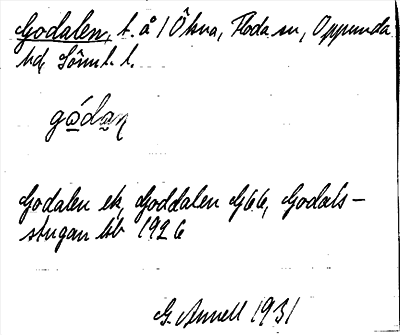 Godalen, t. å / Ökna, Floda sn, Oppunda
hd, Sörml. l.
gó̠da̠n
Godalen ek, Goddalen G66, Godals-
stugan lsb 1926
G. Annell 1931